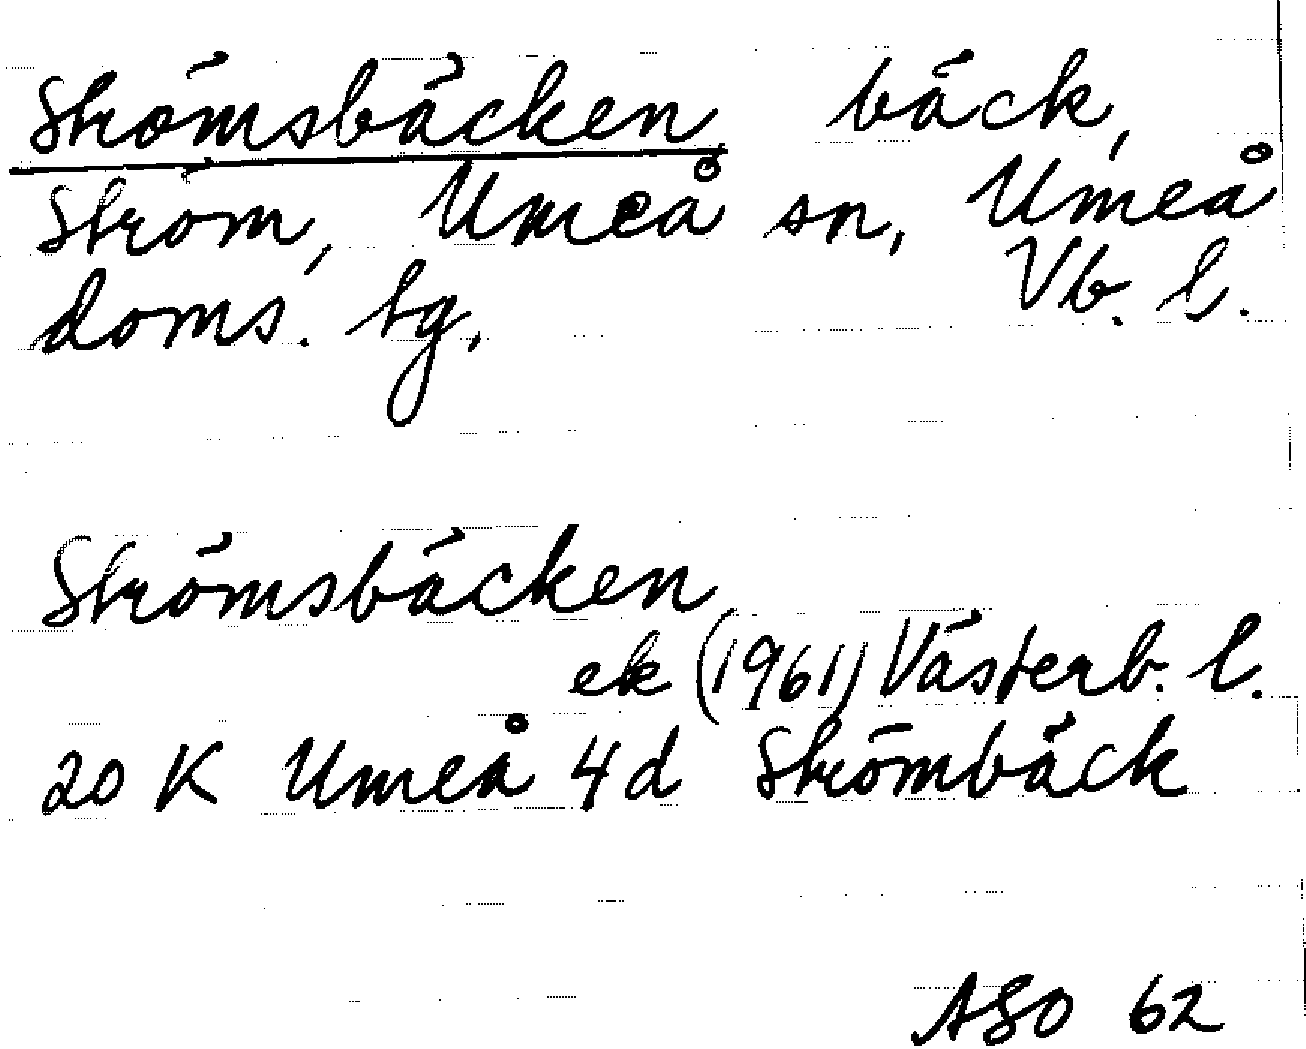 Strömsbäcken bäck,
Ström, Umeå sn, Umeå
doms. tg. Vb. l.
Strömsbäcken
ek (1961) Västerb. l.
20 K Umeå 4d Strömbäck
ASO 62